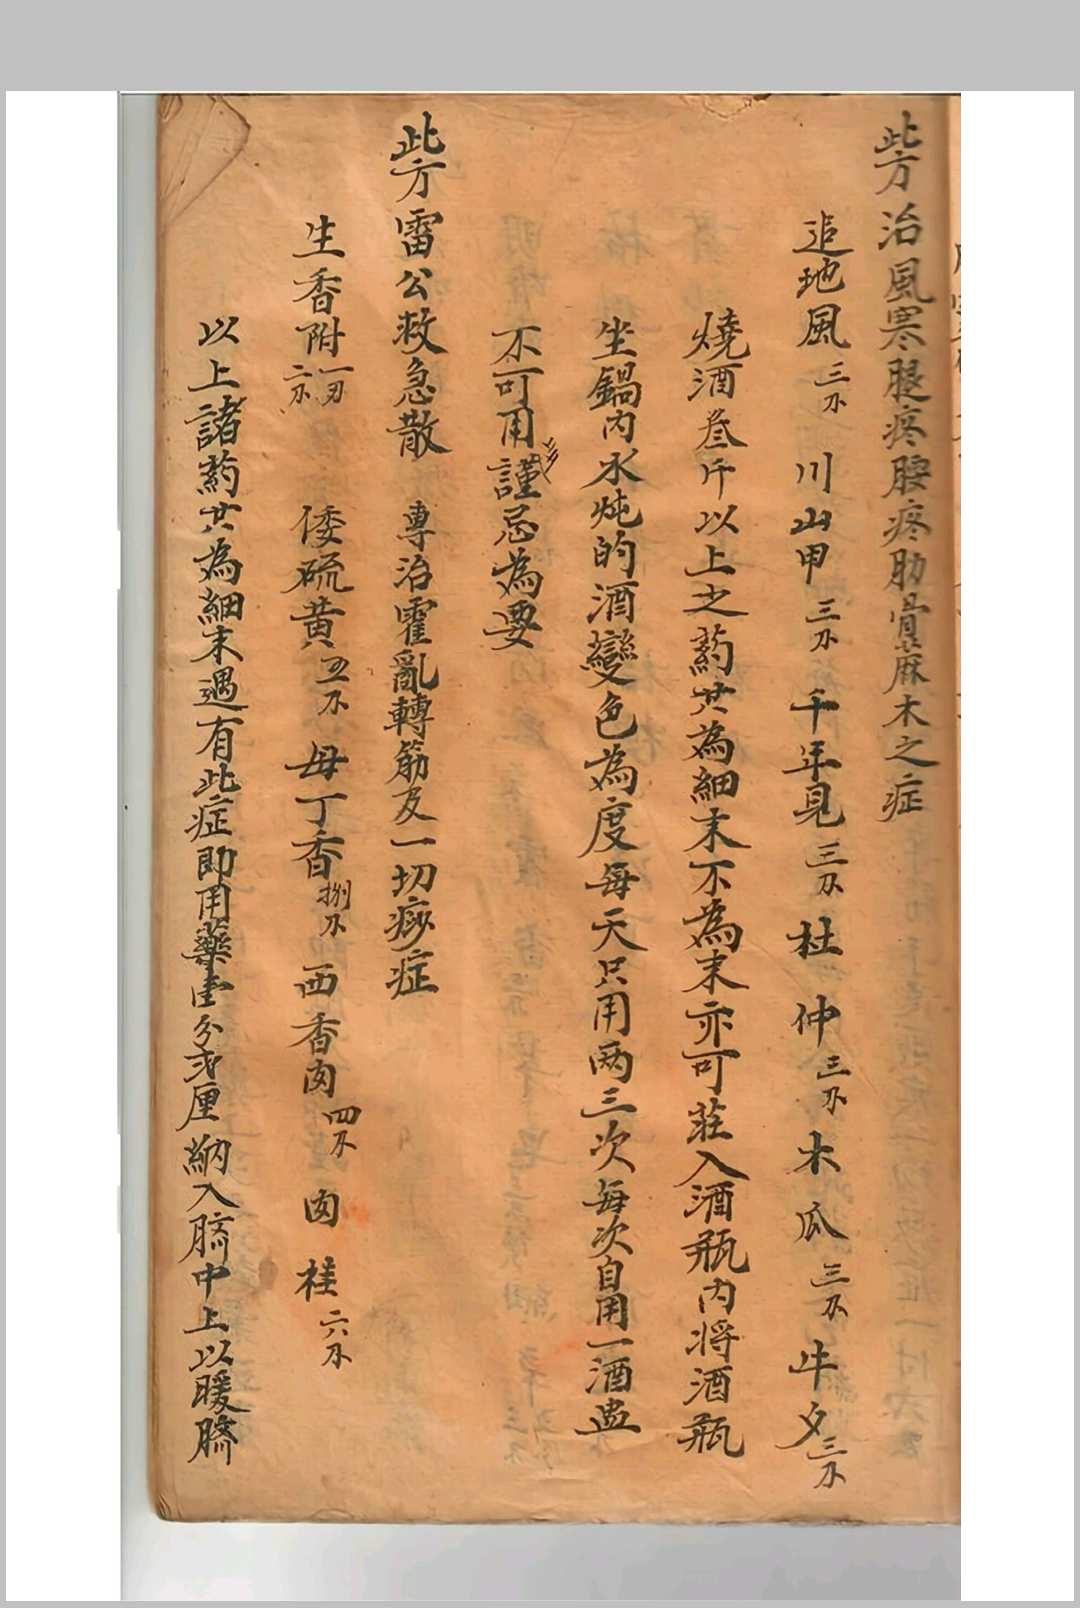 此方治風寒腿疼腰疼肋骨麻木之症
追地風三不 川山甲三不 千年見三不 杜仲三不 木瓜三不 牛夕三不
燒酒叁斤以上之葯共為細末不為末亦可莊入酒瓶內將酒瓶
坐鍋內水炖的酒變色為度每天只用两三次每次自用一酒盅
不可用謹忌為要
此方雷公救急散 專治霍亂轉筋及一切痧症
生香附一刃二不 倭硫黄五不 母丁香捌不 西香肉四不 肉桂六不
以上諸葯共為細末遇有此症即用藥壹分或厘納入臍中上以暖臍